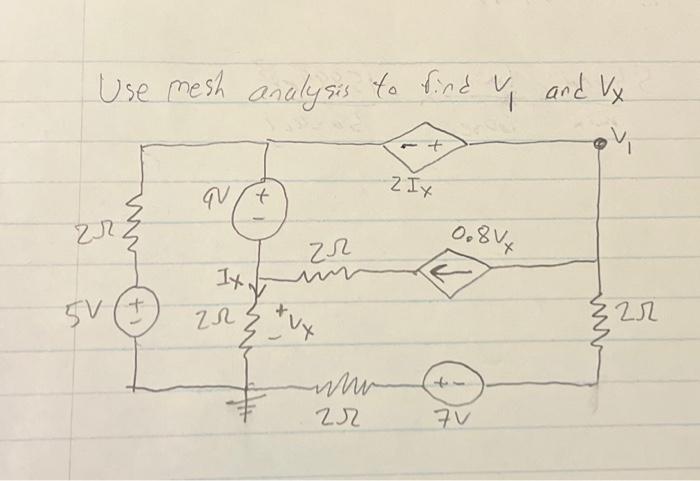 Use mesh analysis to find V₁ and Vx
- +
V₁
2Ix
9V
+
-
2Ω
2Ω
0.8Vx
Ix
5V
+
-
2Ω
+
Vx
-
2Ω
2Ω
+ -
7V